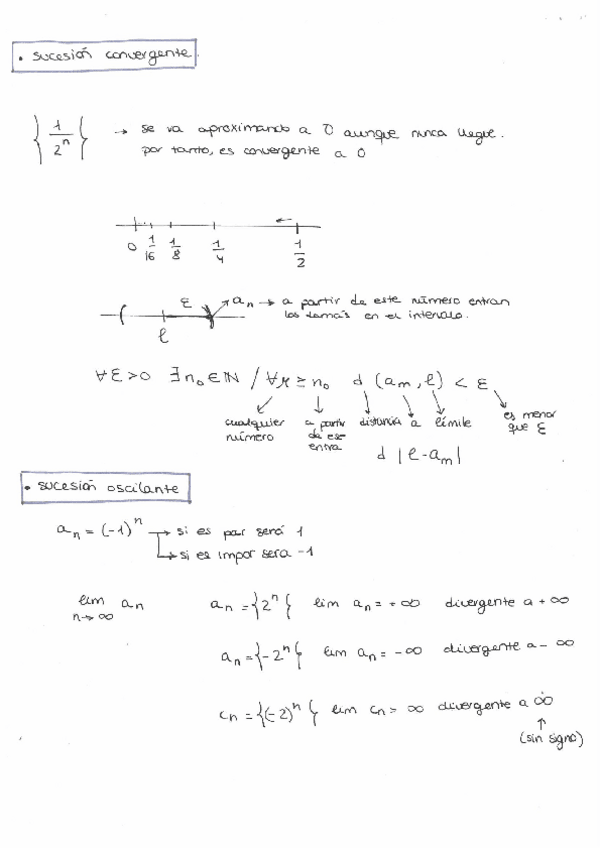 • sucesión convergente.
{1/2ⁿ} → se va aproximando a 0 aunque nunca llegue.
por tanto, es convergente a 0
0 1/16 1/8 1/4 1/2
ε aₙ → a partir de este número entran
los demás en el intervalo.
ℓ
∀ε>0 ∃n₀∈ℕ / ∀n≥n₀ d(aₘ, ℓ) < ε
cualquier número
a partir de ese entra
distancia a límite
es menor que ε
d |ℓ-aₘ|
• sucesión oscilante
aₙ = (-1)ⁿ → si es par será 1
→ si es impar sera -1
lim aₙ n→∞
aₙ = {2ⁿ} lim aₙ = +∞ divergente a +∞
aₙ = {-2ⁿ} lim aₙ = -∞ divergente a -∞
cₙ = {(-2)ⁿ} lim cₙ = ∞ divergente a ∞
↑
(sin signo)